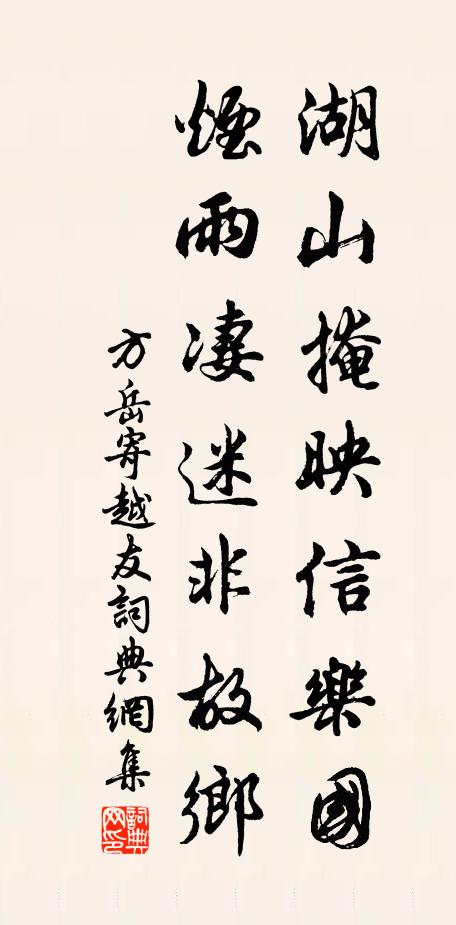 湖山掩映信樂國
煙雨凄迷非故鄉
方岳寄越友詞典網集
詞典網印